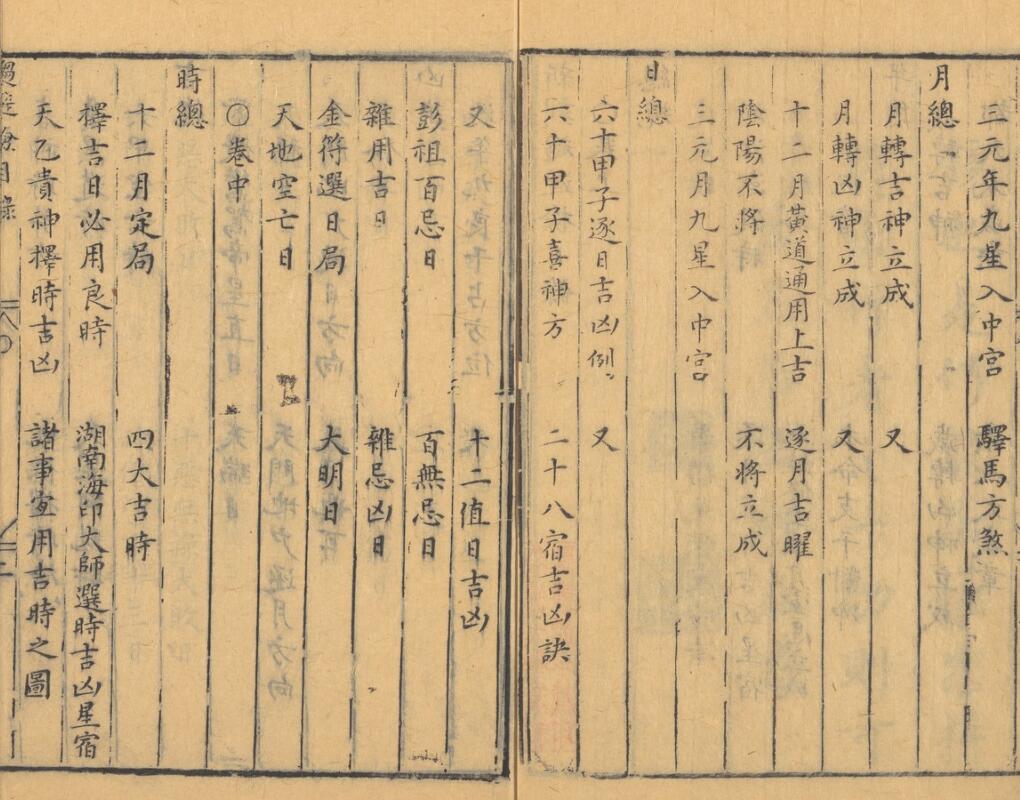 三元年九星入中宮 驛馬方煞
月總
月轉吉神立成 又
月轉凶神立成 又
十二月黃道通用上吉 逐月吉曜
陰陽不將 不將立成
三元月九星入中宮
日總
六十甲子逐日吉凶例 又
六十甲子喜神方 二十八宿吉凶訣
又 十二值日吉凶
彭祖百忌日 百無忌日
雜用吉日 雜忌凶日
金符選日局 大明日
天地空亡日
〇卷中
時總
十二月定局 四大吉時
擇吉日必用良時 湖南海印大師選時吉凶星宿
天乙貴神擇時吉凶 諸事宜用吉時之圖
目錄